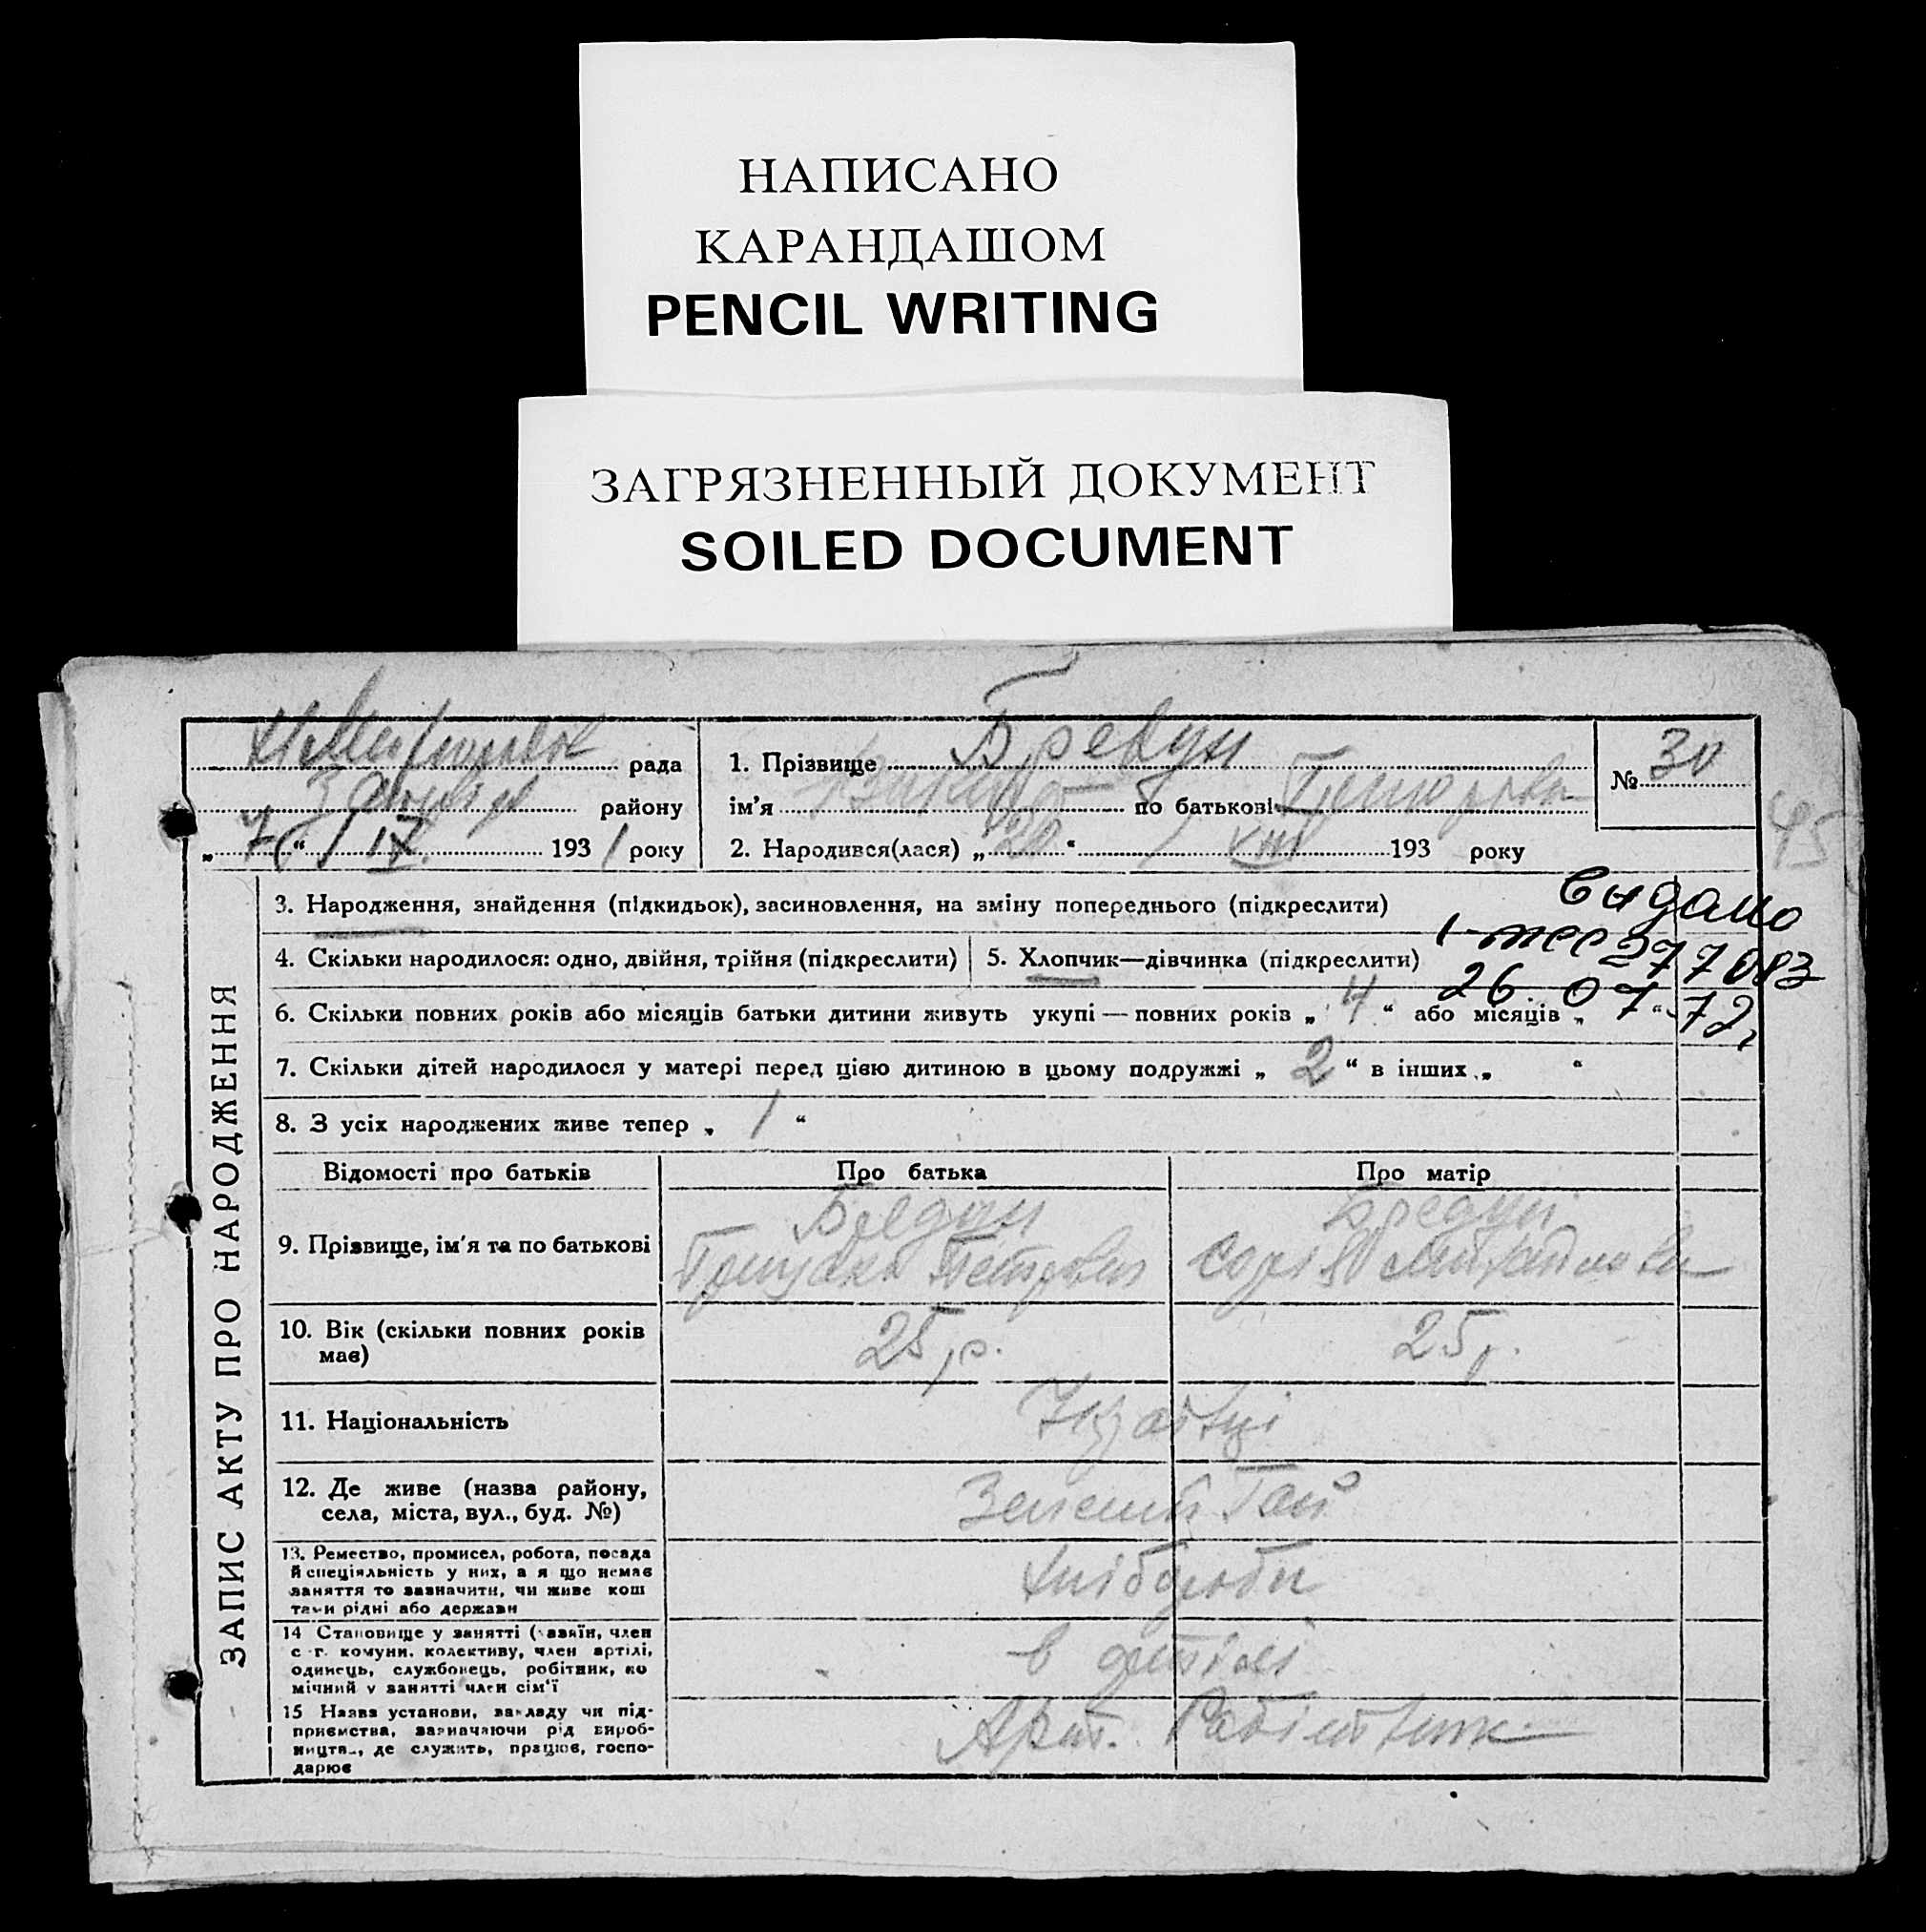 НАПИСАНО
КАРАНДАШОМ
PENCIL WRITING
ЗАГРЯЗНЕННЫЙ ДОКУМЕНТ
SOILED DOCUMENT
рада
району
„ 7 “ IX 1931 року
1. Прізвище Бредун
ім’я по батькові
2. Народився(лася) „20“ VIII 193 року
№ 30
45
Видано
277083
26.07.72г
ЗАПИС АКТУ ПРО НАРОДЖЕННЯ
3. Народження, знайдення (підкидьок), засиновлення, на зміну попереднього (підкреслити)
4. Скільки народилося: одно, двійня, трійня (підкреслити)
5. Хлопчик—дівчинка (підкреслити)
6. Скільки повних років або місяців батьки дитини живуть укупі — повних років „ 4 “ або місяців „ “
7. Скільки дітей народилося у матері перед цією дитиною в цьому подружжі „ 2 “ в інших „ “
8. З усіх народжених живе тепер „ 1 “
Відомості про батьків
Про батька
Про матір
9. Прізвище, ім’я та по батькові
Бредун
Петрович
Бредун
10. Вік (скільки повних років
має)
25 р.
25 р.
11. Національність
12. Де живе (назва району,
села, міста, вул., буд. №)
Зелений Гай
13. Ремество, промисел, робота, посада
й спеціяльність у них, а я що немає
заняття то зазначити, чи живе кош
тами рідні або держави
хлібороби
14 Становище у занятті (хазяїн, член
с.-г. комуни, колективу, член артілі,
одинець, службовець, робітник, по
мічний у занятті член сім’ї
в артілі
15 Назва установи, закладу чи під-
приємства, зазначаючи рід вироб-
ництва, де служить, працює, госпо-
дарює
Арт.